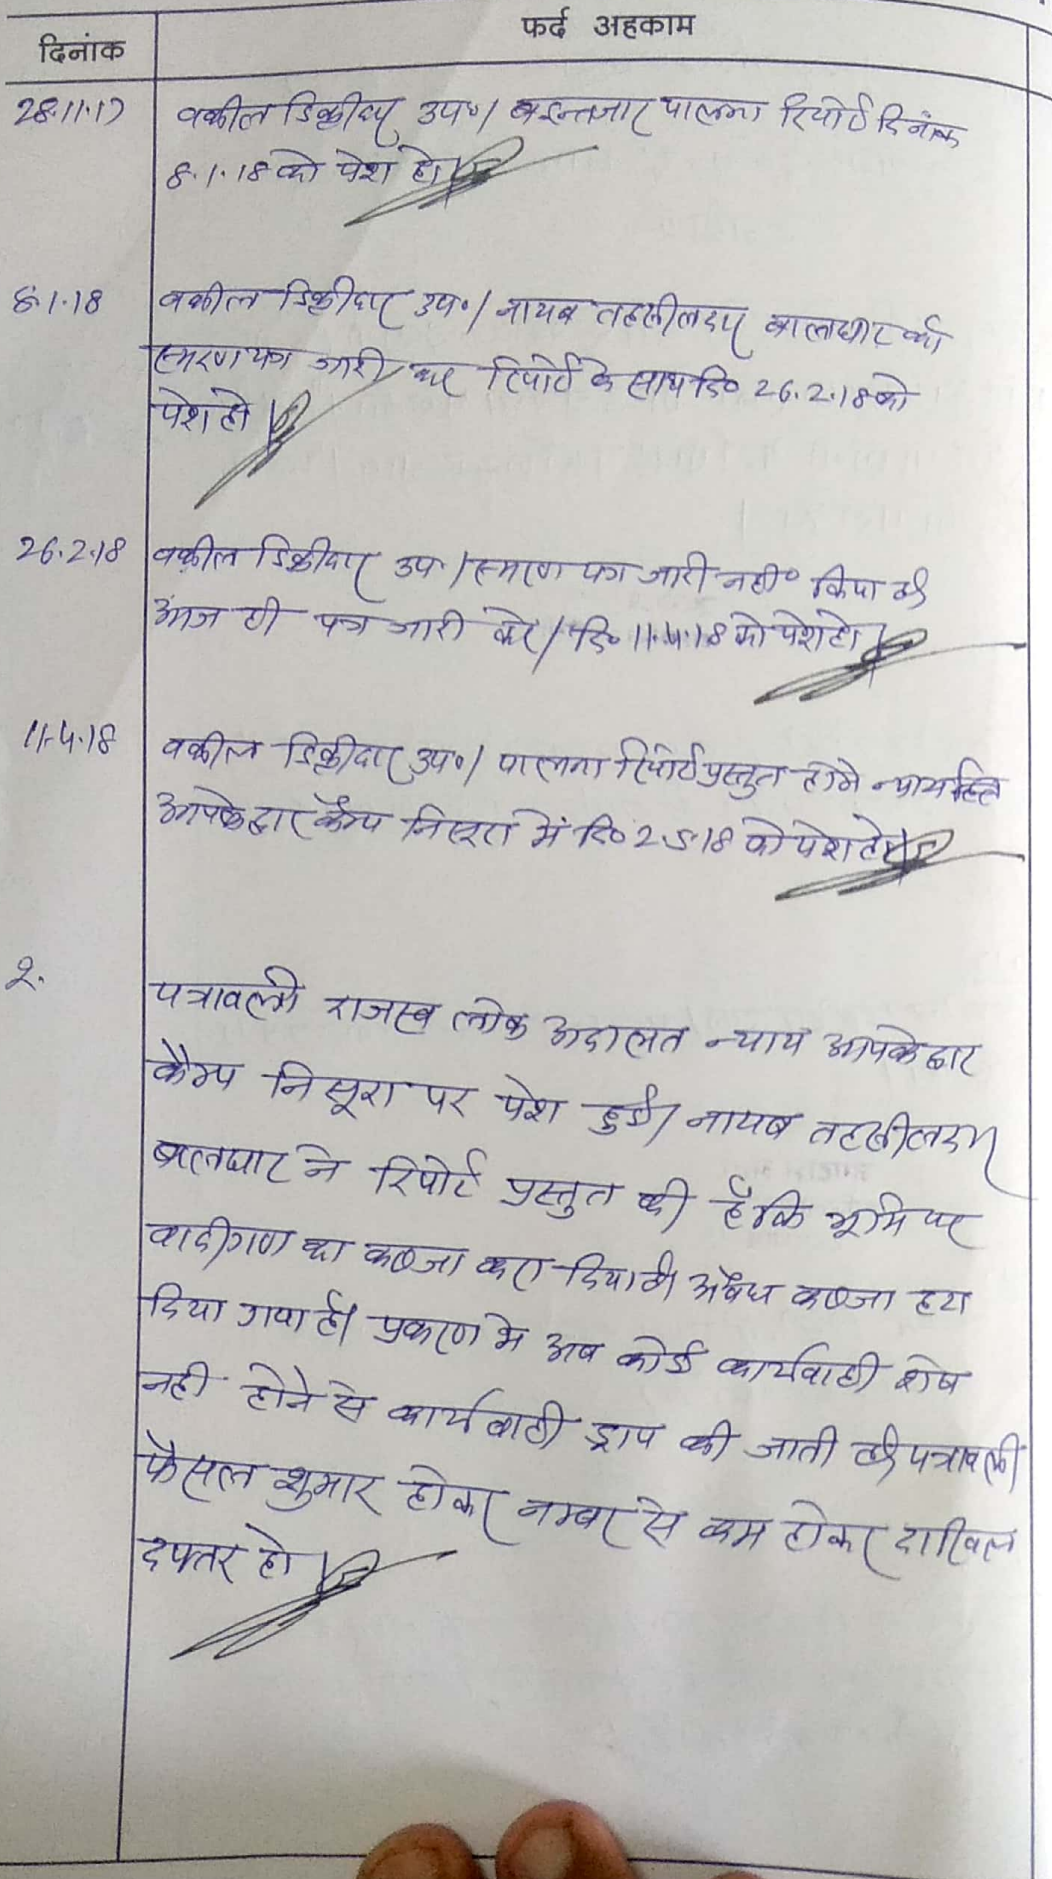 दिनांक
फर्द अहकाम
28.11.17
वकील डिक्रीदार उप०/ बइन्तजार पालना रिपोर्ट दिनांक
8.1.18 को पेश हो।
8.1.18
वकील डिक्रीदार उप०/ नायब तहसीलदार बालघाट को
स्मरण पत्र जारी कर रिपोर्ट के साथ दि० 26.2.18 को
पेश हो।
26.2.18
वकील डिक्रीदार उप०/ स्मरण पत्र जारी नहीं किया है।
आज ही पत्र जारी करें/ दि० 11.4.18 को पेश हो।
11.4.18
वकील डिक्रीदार उप०/ पालना रिपोर्ट प्रस्तुत होने न्याय
आपके द्वार कैम्प निसूरा में दि० 2.5.18 को पेश हो।
2.
पत्रावली राजस्व लोक अदालत न्याय आपके द्वार
कैम्प निसूरा पर पेश हुई। नायब तहसीलदार
बालघाट ने रिपोर्ट प्रस्तुत की है कि भूमि पर
वादीगण का कब्जा करा दिया है। अवैध कब्जा हटा
दिया गया है। प्रकरण में अब कोई कार्यवाही शेष
नहीं होने से कार्यवाही ड्राप की जाती है। पत्रावली
फैसल शुमार होकर नम्बर से कम होकर दाखिल
दफ्तर हो।